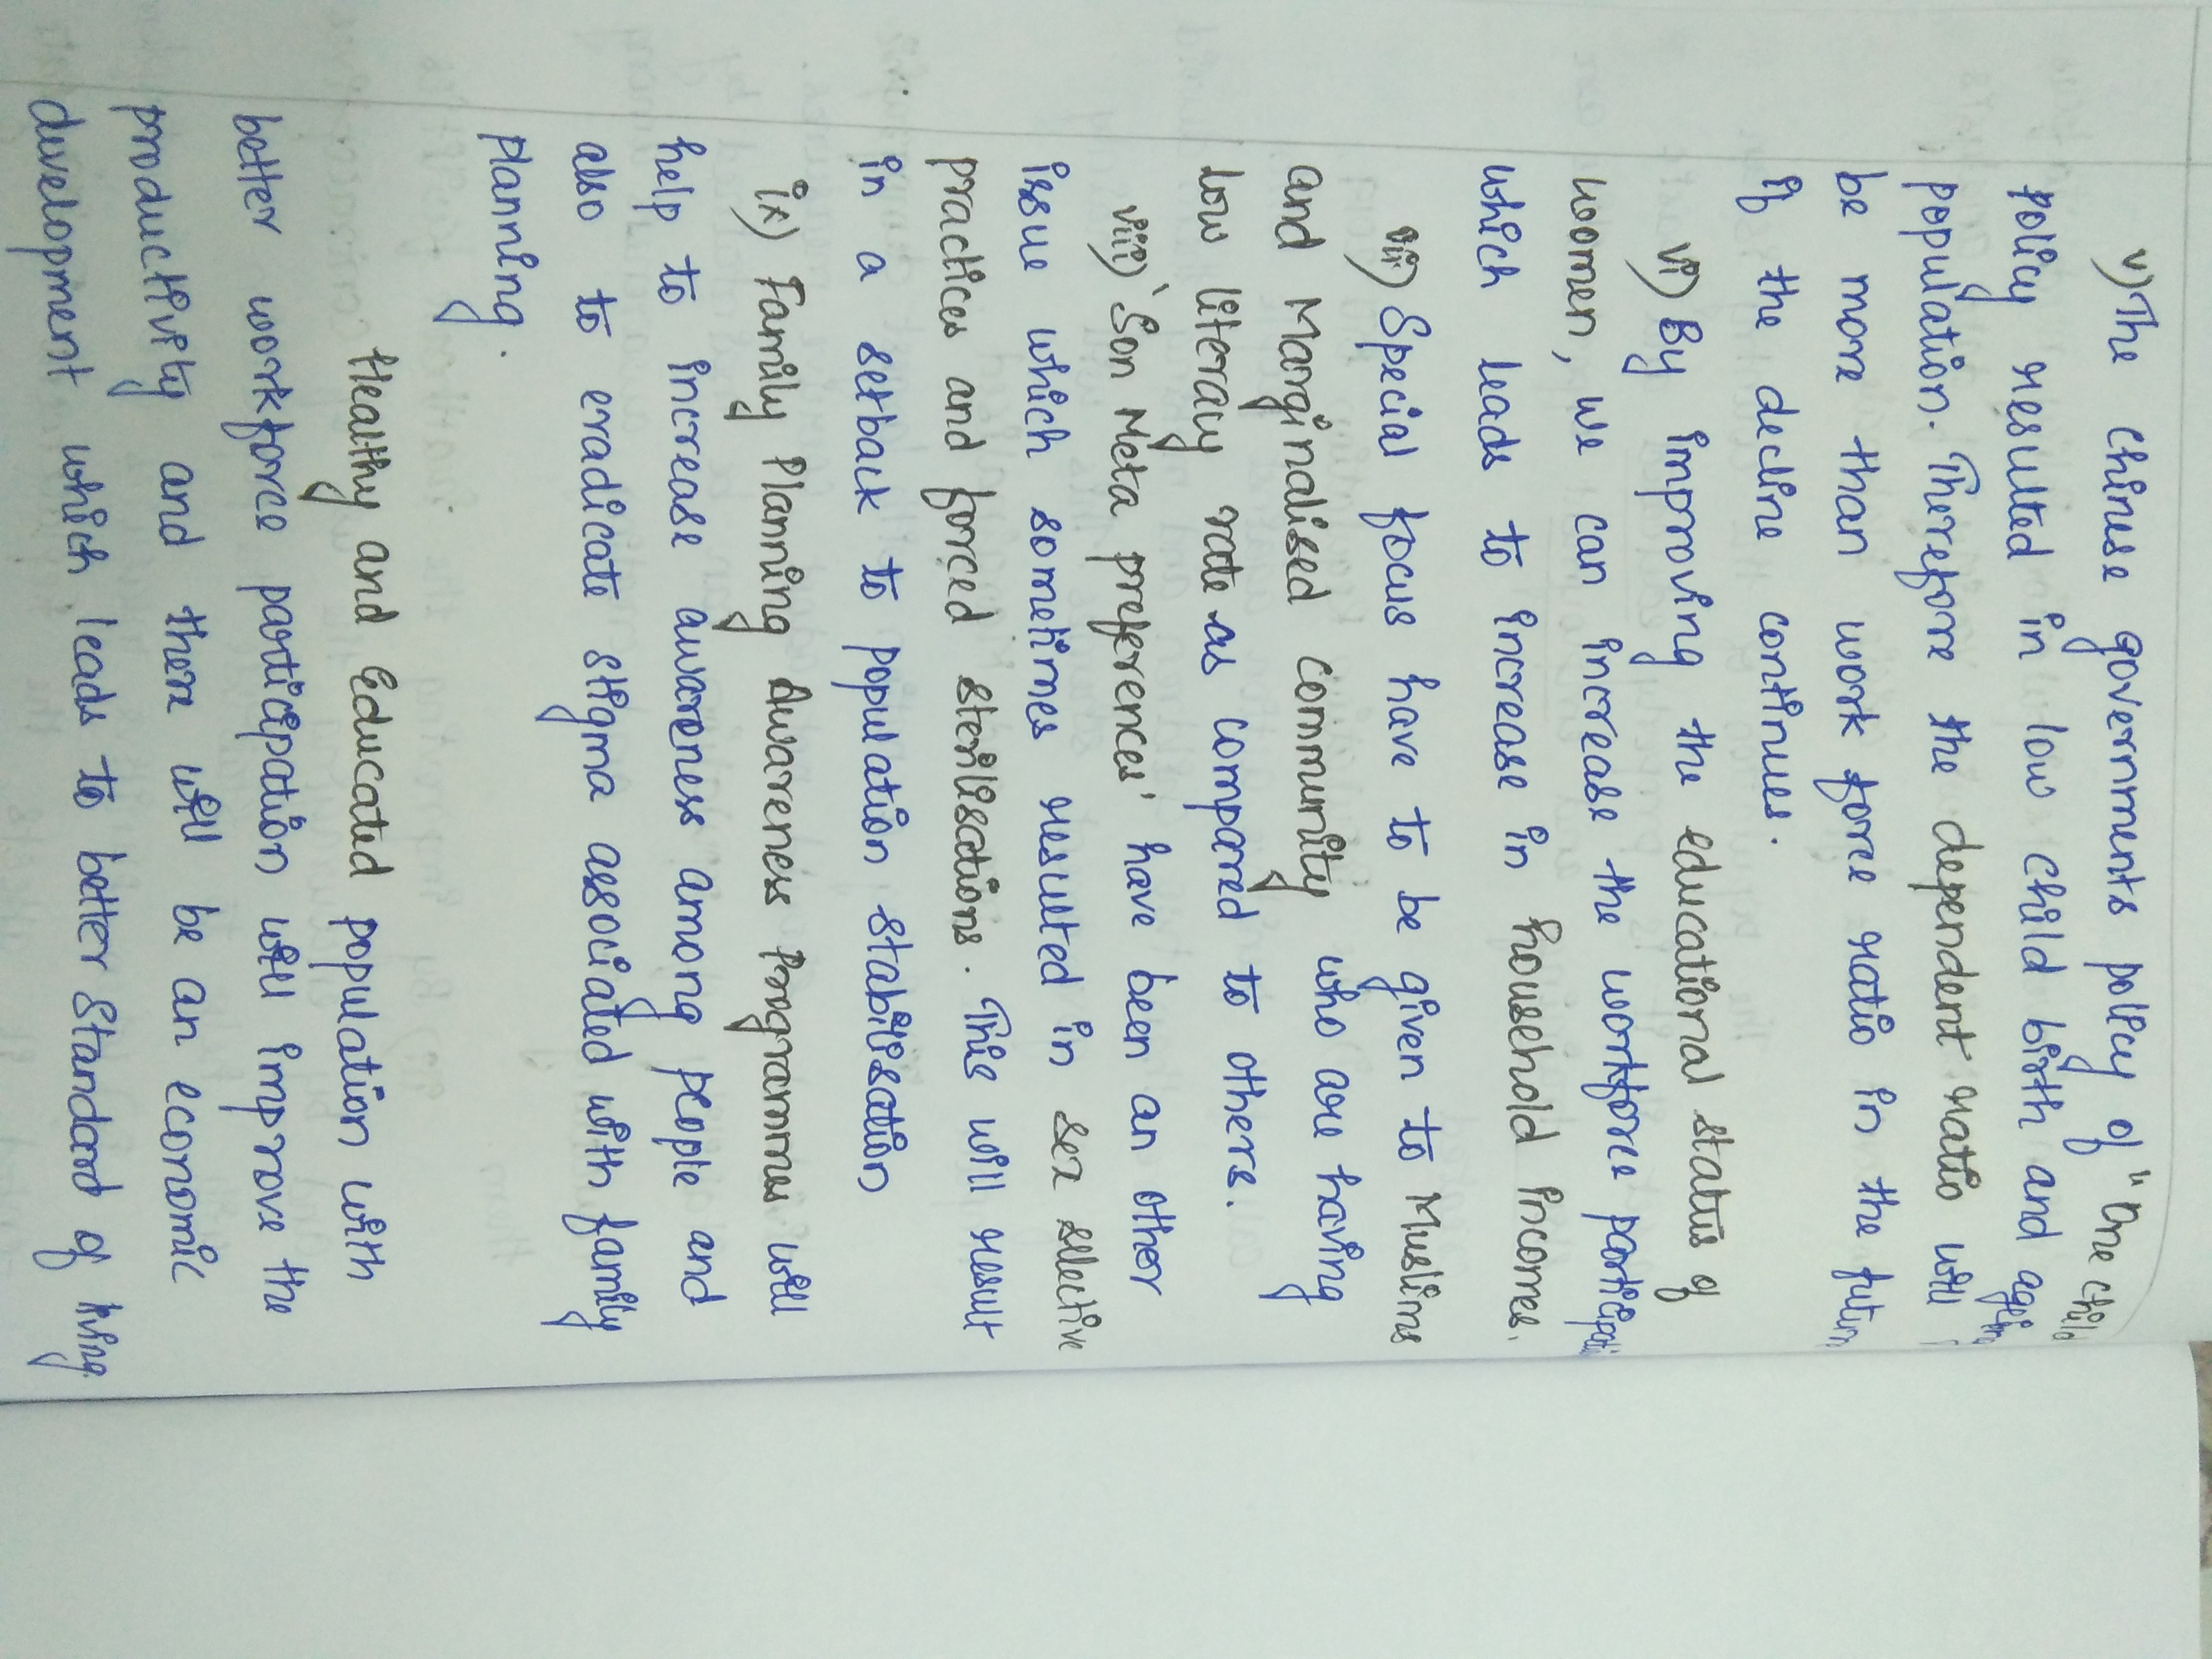 v) The chinese governments policy of "One child
policy resulted in low child birth and ageing
population. Therefore the dependent ratio will
be more than work force ratio in the future
if the decline continues.
vi) By improving the educational status of
women, we can increase the workforce participation
which leads to increase in household incomes.
vii) Special focus have to be given to Muslims
and Marginalised community who are having
low literary rate as compared to others.
viii) 'Son Meta preferences' have been an other
issue which sometimes resulted in sex selective
practices and forced sterilisations. This will result
in a setback to population stabilisation
ix) Family Planning Awareness Programmes will
help to increase awareness among people and
also to eradicate stigma associated with family
planning.
Healthy and Educated population with
better workforce participation will improve the
productivity and there will be an economic
development which leads to better standard of living.